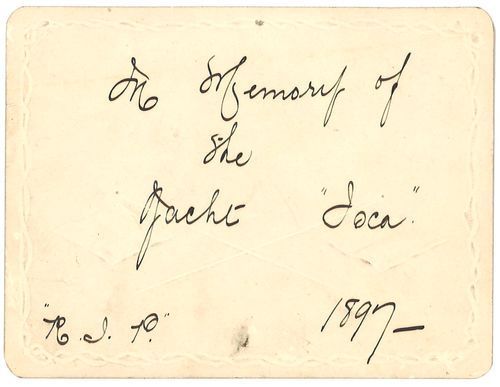 In Memory of
the
Yacht "Ioca".
"R. I. P."
1897